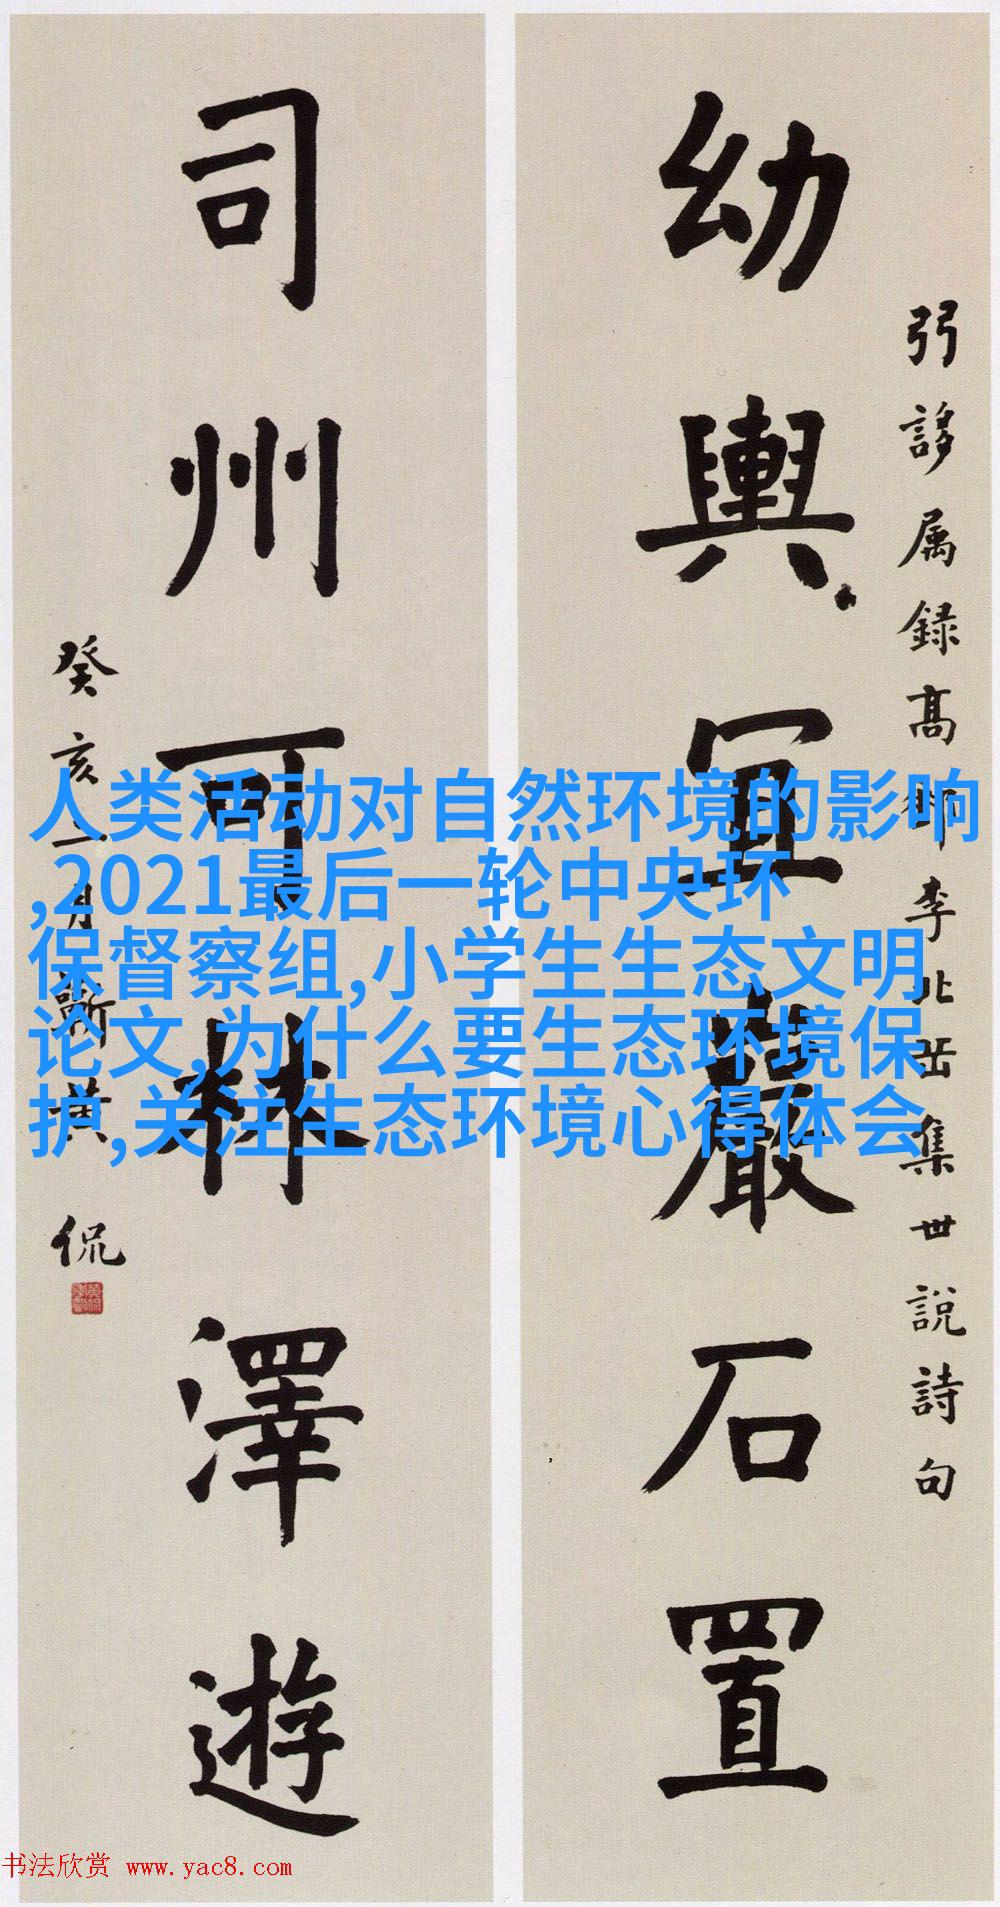 弜誃属録高邮李北岳集世説詩句
幼輿宜巖石置
司州可林澤遊
癸亥二月蕲黄侃
人类活动对自然环境的影响
,2021最后一轮中央环
保督察组,小学生生态文明
论文,为什么要生态环境保
护,关注生态环境心得体会
书法欣赏 www.yac8.com